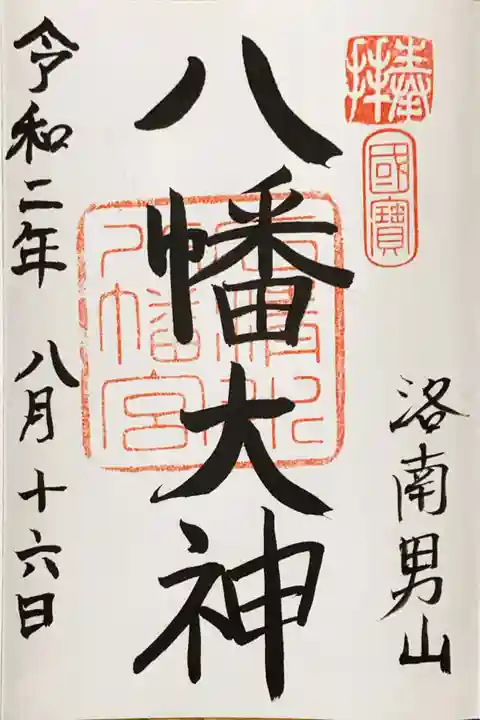 奉拝
國寶
洛南男山
八幡大神
石清水
八幡宮
令和二年 八月十六日